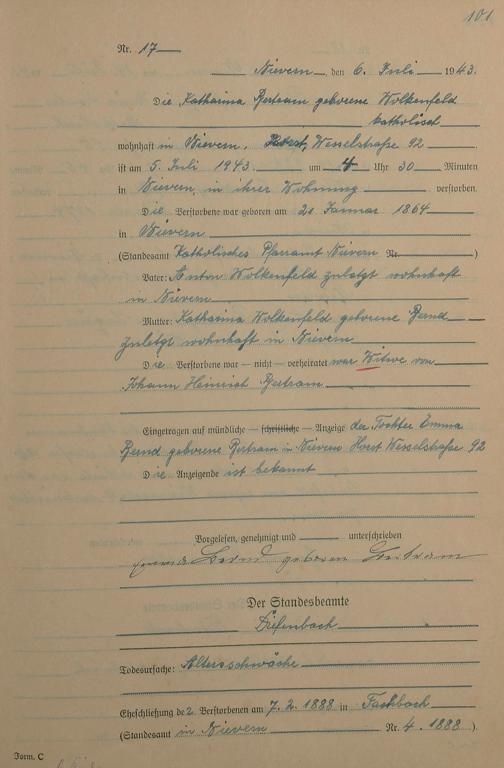 101
Nr. 17
Nievern, den 6. Juli 1943.
Die Katharina Bertram geborene Wolkenfeld
katholisch
wohnhaft in Nievern, Horst, Wesselstraße 92
ist am 5. Juli 1943 um 4 Uhr 30 Minuten
in Nievern, in ihrer Wohnung verstorben.
Die Verstorbene war geboren am 21 Januar 1864
in Nievern
(Standesamt Katholisches Pfarramt Nievern Nr. )
Vater: Anton Wolkenfeld zuletzt wohnhaft
in Nievern
Mutter: Katharina Wolkenfeld geborene Bernd
zuletzt wohnhaft in Nievern
Die Verstorbene war — nicht — verheiratet war Witwe von
Johann Heinrich Bertram
Eingetragen auf mündliche — schriftliche — Anzeige der Tochter Emma
Bernd geborene Bertram in Nievern Horst Wesselstraße 92
Die Anzeigende ist bekannt
Vorgelesen, genehmigt und unterschrieben
Bernd geboren Bertram
Der Standesbeamte
Diefenbach
Todesursache: Altersschwäche
Eheschließung de2 Verstorbenen am 7.2.1888 in Fachbach
(Standesamt in Nievern Nr. 4. 1888).
Form. C